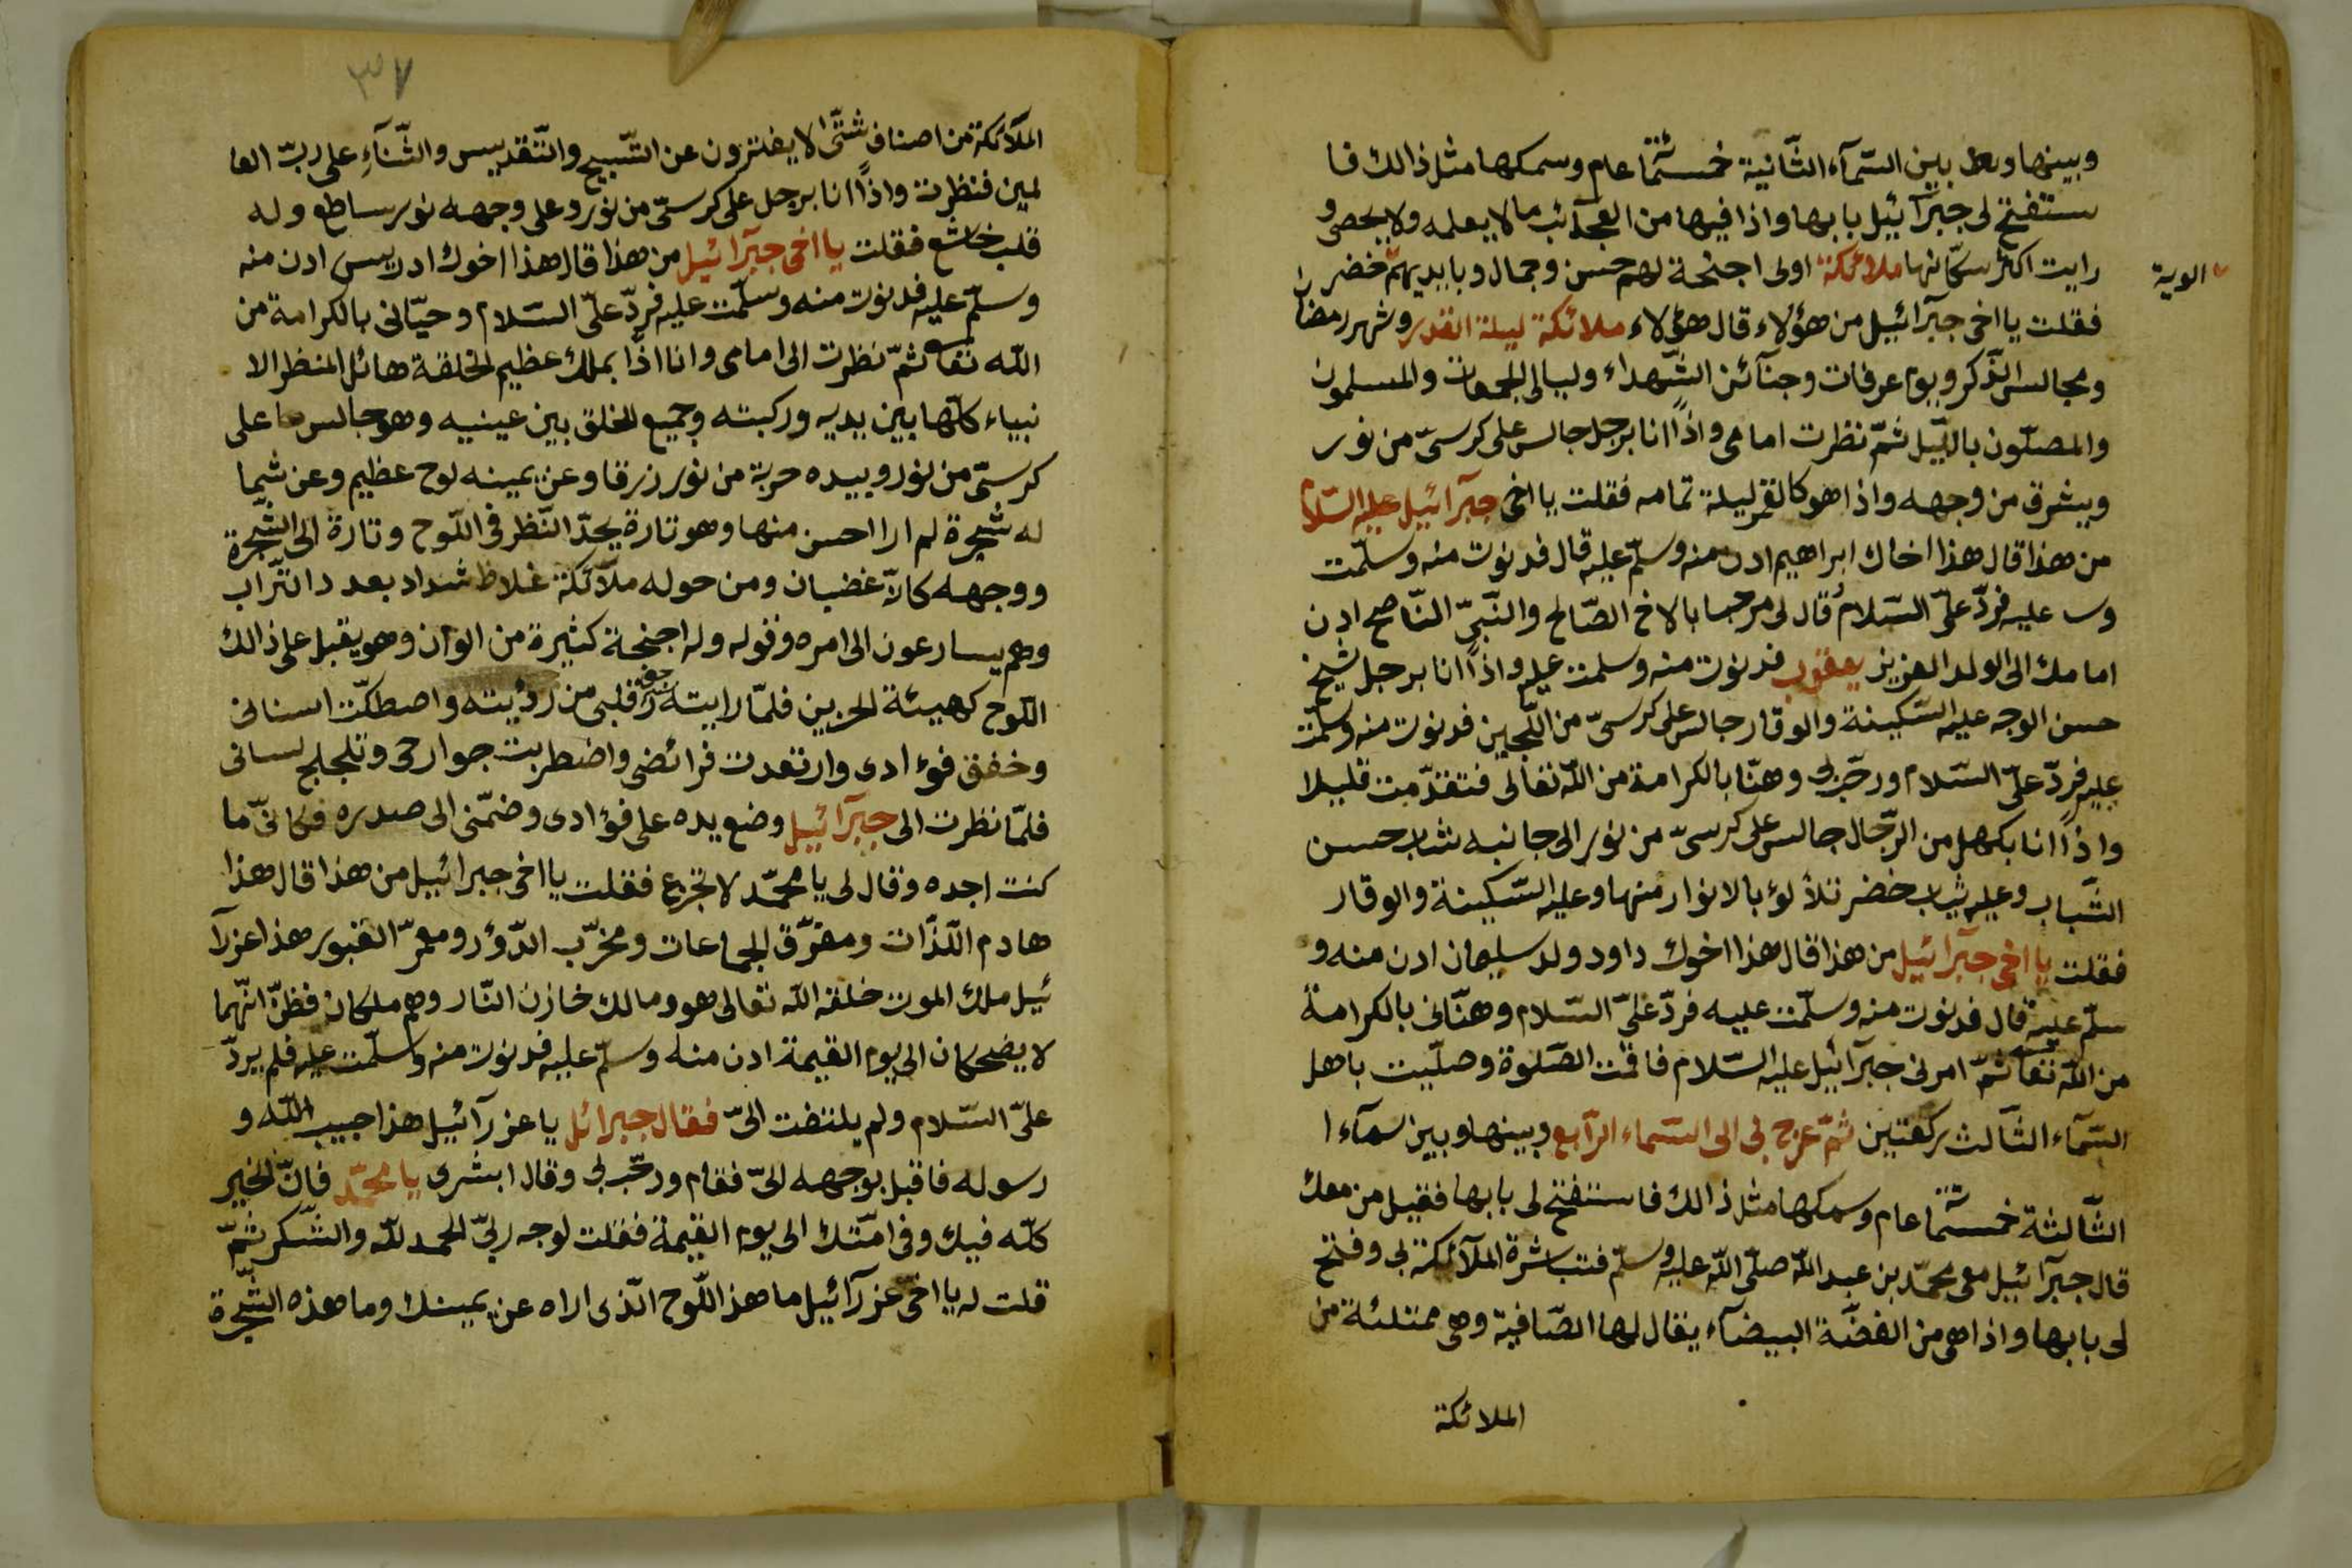 وبينها وبين السّمآء الثّانية خمسمّائة عام وسمكها مثل ذالك فا
ستفتح لى جبرآئيل بابها واذا فيها من العجآئب ما لا يعلمه ولا يحصى و
رايت اكثر سكّانها ملائكة اولى اجنحة لهم حسن وجمال وبايديهم خضر
الوية
فقلت يا اخى جبرآئيل من هؤلاء قال هؤلاء ملائكة ليلة القدر وشهر رمضان
ومجالس الذّكر ويوم عرفات وجنآئن الشّهداء وليالى الجمعات والمسلمون
والمصلّون بالليّل ثمّ نظرت امامى واذاً انا برجل جالس على كرسىّ من نور
ويشرق من وجهه واذا هو كالقمر ليلة تمامه فقلت يا اخى جبرآئيل عليه السّلام
من هذا قال هذا اخاك ابراهيم ادن منه وسلّم عليه قال فدنوت منه وسلّمت
عليه فردّ علىّ السّلام قال لى مرحبا بالاخ الصّالح والنّبىّ النّاصح ادن
امامك الى الولد العزيز يعقوب فدنوت منه وسلمت عليه واذاً انا برجل شيخ
حسن الوجه عليه السّكينة والوقار جالس على كرسىّ من اللّجين فدنوت منه وسلّمت
عليه فردّ علىّ السّلام ورحّب بى وهنّا بالكرامة من اللّه تعالى فتقدّمت قليلا
واذاً انا بكهل من الرّجال جالس على كرسىّ من نور الى جانبه شاب حسن
الشّباب وعليه ثياب خضر تلألؤ بالانوار منها وعليه السّكينة والوقار
فقلت يا اخى جبرآئيل من هذا قال هذا اخوك داود ولد سليمان ادن منه و
سلّم عليه قال فدنوت منه وسلّمت عليه فردّ علىّ السّلام وهنّانى بالكرامة
من اللّه تعا ثمّ امرنى جبرآئيل عليه السّلام فاقمت الصّلوة وصلّيت باهل
السّمآء الثّالث ركعتين ثمّ عرج بى الى السّماء الرّابع وبينها وبين سمآء ا
الثّالثة خمسمّا عام وسمكها مثل ذالك فاستفتح لى بابها فقيل من معك
قال جبرآئيل معى محمّد بن عبد اللّه صلّى اللّه عليه وسلّم فتباشرة الملآئكة بى وفتح
لى بابها واذا هى من الفضّة البيضآء يقال لها الصّافية وهى ممتلئة من
الملائكة
٣٧
الملآئكة من اصناف شتّى لا يفترون عن التّسبيح والتّقديس والثّنآءِ على ربّ العا
لمين فنظرت واذاً انا برجل على كرسىّ من نور وعلى وجهه نور ساطع وله
قلب خاشع فقلت يا اخى جبرآئيل من هذا قال هذا اخوك ادريس ادن منه
وسلّم عليه فدنوت منه وسلّمت عليه فردّ علىّ السّلام وحيّانى بالكرامة من
اللّه تعا ثمّ نظرت الى امامى وانا اذًا بملك عظيم الخلقة هائل المنظر الا
نبياء كلّها بين يديه وركبته وجميع الخلق بين عينيه وهو جالس على
كرسىّ من نور وبيده حربة من نور زرقا وعن يمينه لوح عظيم وعن شما
له شجرة لم ارا احسن منها وهو تارة يحدّ النّظر فى اللّوح وتارة الى الشّجرة
ووجهه كالآ غضبان ومن حوله ملآئكة غلاظ شداد بعدد التّراب
وهم يسارعون الى امره وقوله وله اجنحة كثيرة من الوان وهو يقبل على ذالك
اللّوح كهيئة الحزين فلمّا رايته قلبى من رؤيته واصطكّت اسنانى
وخفق فؤادى وارتعدت فرائضى واضطربت جوارحى وتلجلج لسانى
فلمّا نظرت الى جبرآئيل وضع يده على فؤادى وضمّنى الى صدره فكانّى ما
كنت اجده وقال لى يا محمّد لا تجزع فقلت يا اخى جبرائيل من هذا قال هذا
هادم اللّذّات ومفرّق الجماعات ومخرّب الدّور ومعمرّ القبور هذا عزرآ
ئيل ملك الموت خلقه اللّه تعالى هو ومالك خازن النّار وهم ملكان فظنّ انّهما
لا يضحكان الى يوم القيمة ادن منه وسلّم عليه فدنوت منه وسلّمت عليه فلم يردّ
علىّ السّلام ولم يلتفت الىّ فقال جبرائل يا عزرآئيل هذا حبيب اللّه و
رسوله فاقبل بوجهه الىّ فقام ورحّب بى وقال ابشرى يا محمّد فانّ الخير
كلّه فيك وفى امّتك الى يوم القيمة فقلت لوجه ربىّ الحمد للّه والشّكر ثمّ
قلت له يا اخى عزرآئيل ما هذ اللّوح الّذى اراه عن يمينك وما هذه الشّجرة